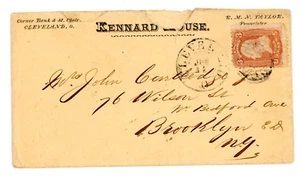 Corner Bank & St. Clair,
CLEVELAND, O.
KENNARD HOUSE.
R. M. N. TAYLOR,
Proprietor
CLEVEL
Mrs John
76 Wilson St
Bedford Ave
Brooklyn E D
N.Y.